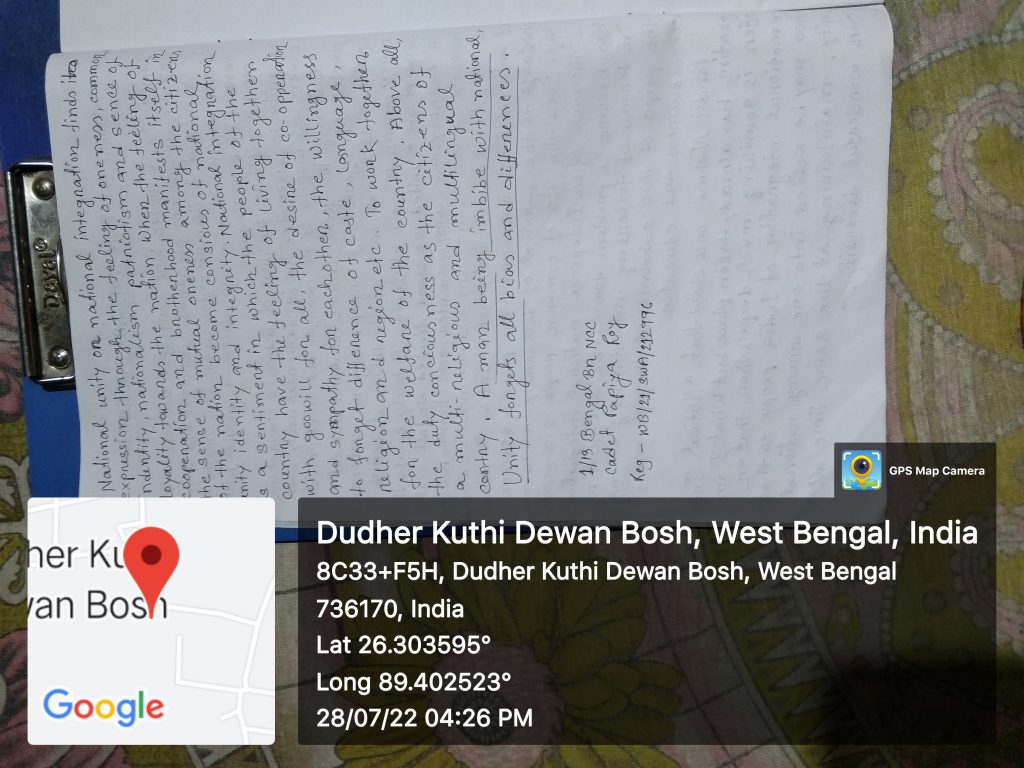 National unity or national integration finds its
expression through the feeling of oneness, common
indantity, nationalism patriotism and sence of
loyality towards the nation. When the feeling of
cooperation and brotherhood manifests itself in
the sense of mutual oneness among the citizens
of the nation become consious of national
unity identity and integrity. National integration
is a sentiment in which the people of the
country have the feeling of Living together
with goowill for all, the desire of co-opperation
and sympathy for eachother, the willingness
to forget difference of caste, language,
religion and region etc. To work together
for the welfare of the country. Above all,
the duty conciousness as the citizens of
a multi-religious and multilingual
contry. A man being imbibe with national,
Unity forgets all bias and differences.
4/13 Bengal Bn NCC
Cadet Papiya Roy
Reg - WB/21/SWA/212996
Deyal
GPS Map Camera
her Ku
wan Bosh
Google
Dudher Kuthi Dewan Bosh, West Bengal, India
8C33+F5H, Dudher Kuthi Dewan Bosh, West Bengal
736170, India
Lat 26.303595°
Long 89.402523°
28/07/22 04:26 PM